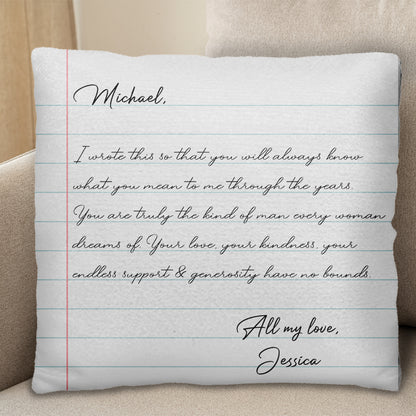 Michael,
I wrote this so that you will always know
what you mean to me through the years.
You are truly the kind of man every woman
dreams of. Your love, your kindness, your
endless support & generosity have no bounds.
All my love,
Jessica